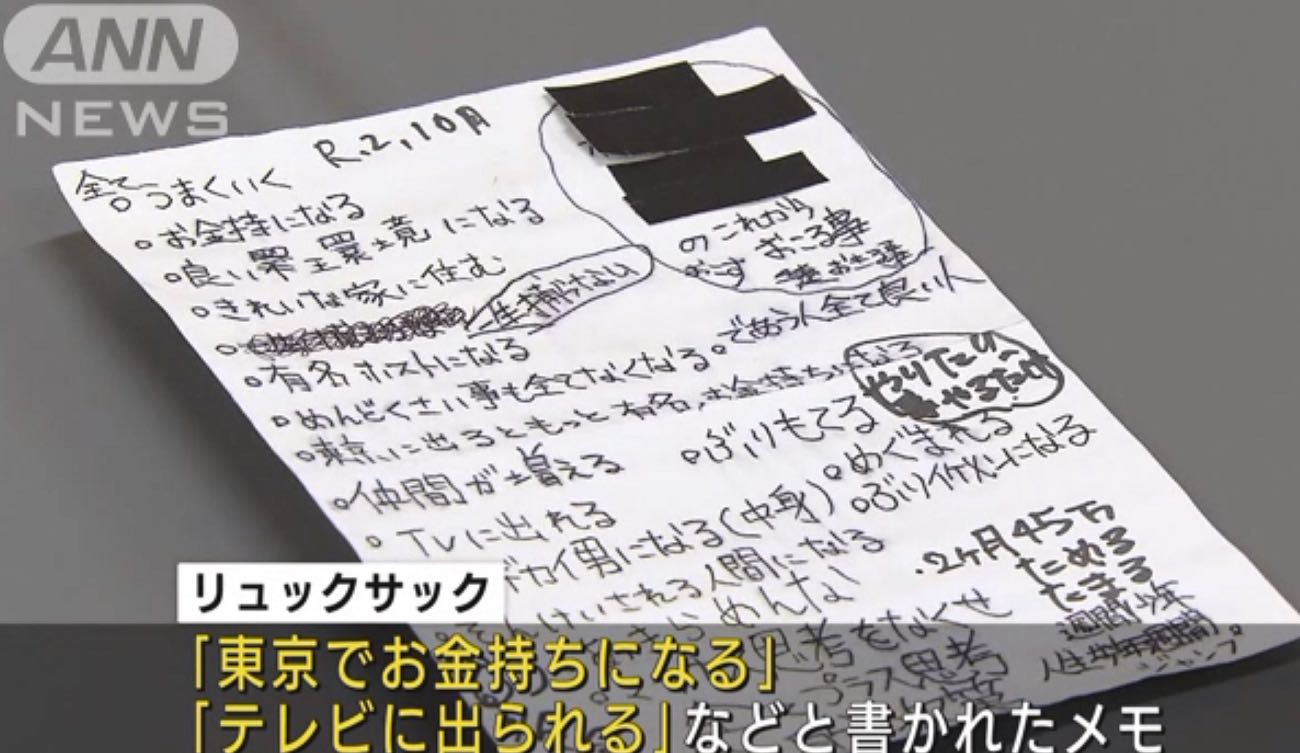 ANN
NEWS
R.2,10月
全てうまくいく
。お金持になる
。良い環境になる
。きれいな家に住む
。有名ホストになる
。めんどくさい事も全てなくなる
。であう人全て良い人
。東京に出るともっと有名、お金持ちになる
。仲間が増える
。TVに出れる
デカイ男になる(中身)
される人間になる
のこれから
おこる事
生捕つない
やりたい
やるだけ
。ぶりもてる
。めぐまれる
。ぶりイケメンになる
.2ヶ月45万
ためる
たまる
週間少年
ジャンプ
思考をなくせ
プラス思考
リュックサック
「東京でお金持ちになる」
「テレビに出られる」などと書かれたメモ